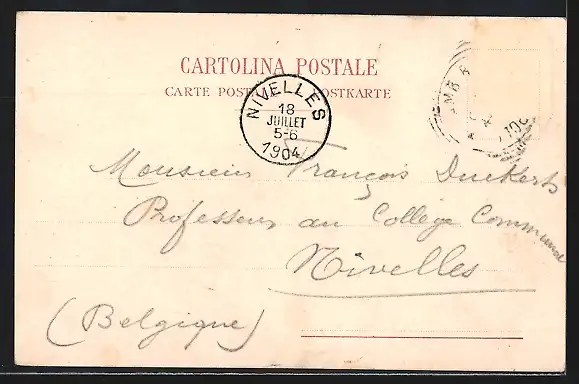 CARTOLINA POSTALE
CARTE POST POSTKARTE
NIVELLES
18
JUILLET
5-6
1904
AMB
Monsieur François Duckerts
Professeur au Collège Communal
Nivelles
(Belgique)